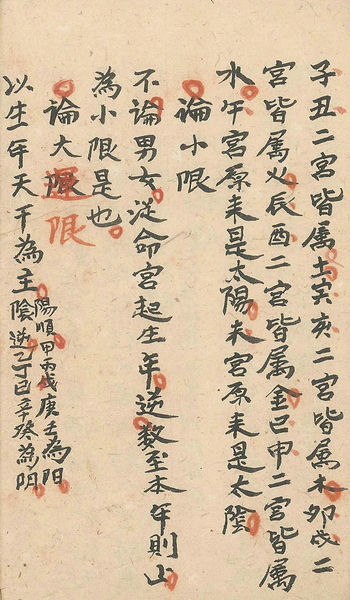 子丑二宮皆属土寅亥二宮皆属木卯戌二
宮皆属火辰酉二宮皆属金巳申二宮皆属
水午宮原来是太陽未宮原来是太陰
論小限
不論男女從命宮起生年逆数至本年則此
為小限是也
論大限
運限
以生年天干為主陽順甲丙戊庚壬為陽
陰逆乙丁己辛癸為阴